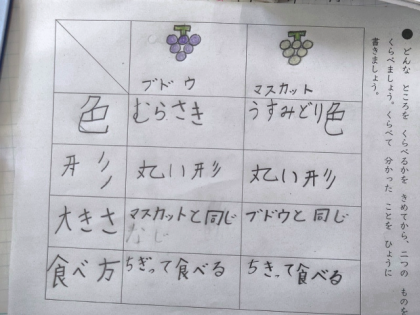 ● どんな ところを くらべるかを きめてから、二つの ものを
くらべましょう。くらべて 分かった ことを ひょうに
書きましょう。
ブドウ マスカット
色 むらさき うすみどり色
形 丸い形 丸い形
大きさ マスカットと同じ ブドウと同じ
食べ方 ちぎって食べる ちぎって食べる